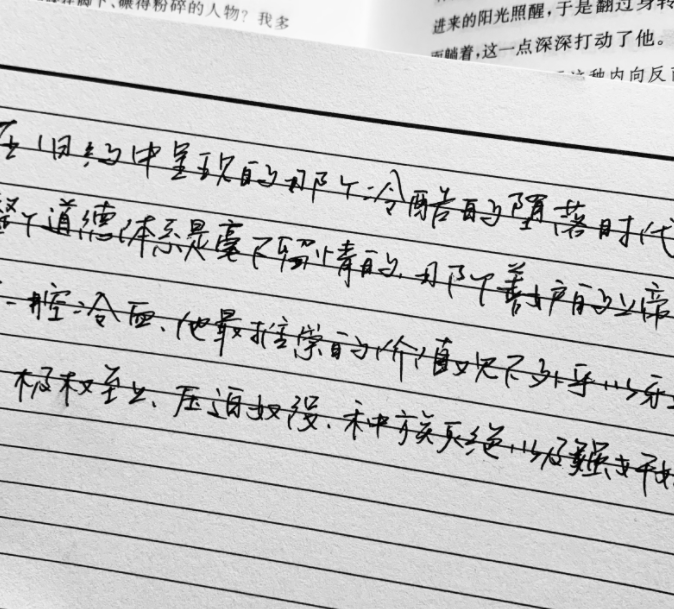 脚下、碾得粉碎的人物？我多
进来的阳光照醒，于是翻过身转
而躺着，这一点深深打动了他。
这种内向反
在旧约中呈现的那个冷酷的堕落时代
整个道德体系是毫不留情的，那个善妒的上帝
一腔冷血、他最推崇的价值观不外乎以牙
极权至上、压迫奴役、种族灭绝以及强大